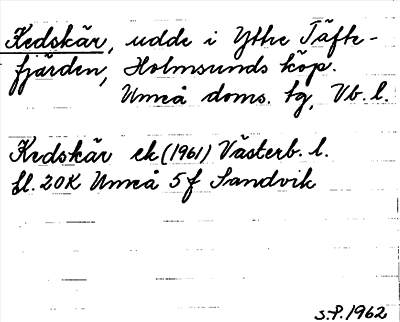 Kedskär, udde i Yttre Täfte-
fjärden, Holmsunds köp.
Umeå doms. tg, Vb. l.
Kedskär ek (1961) Västerb. l.
bl. 20K Umeå 5 f Sandvik
S.P. 1962